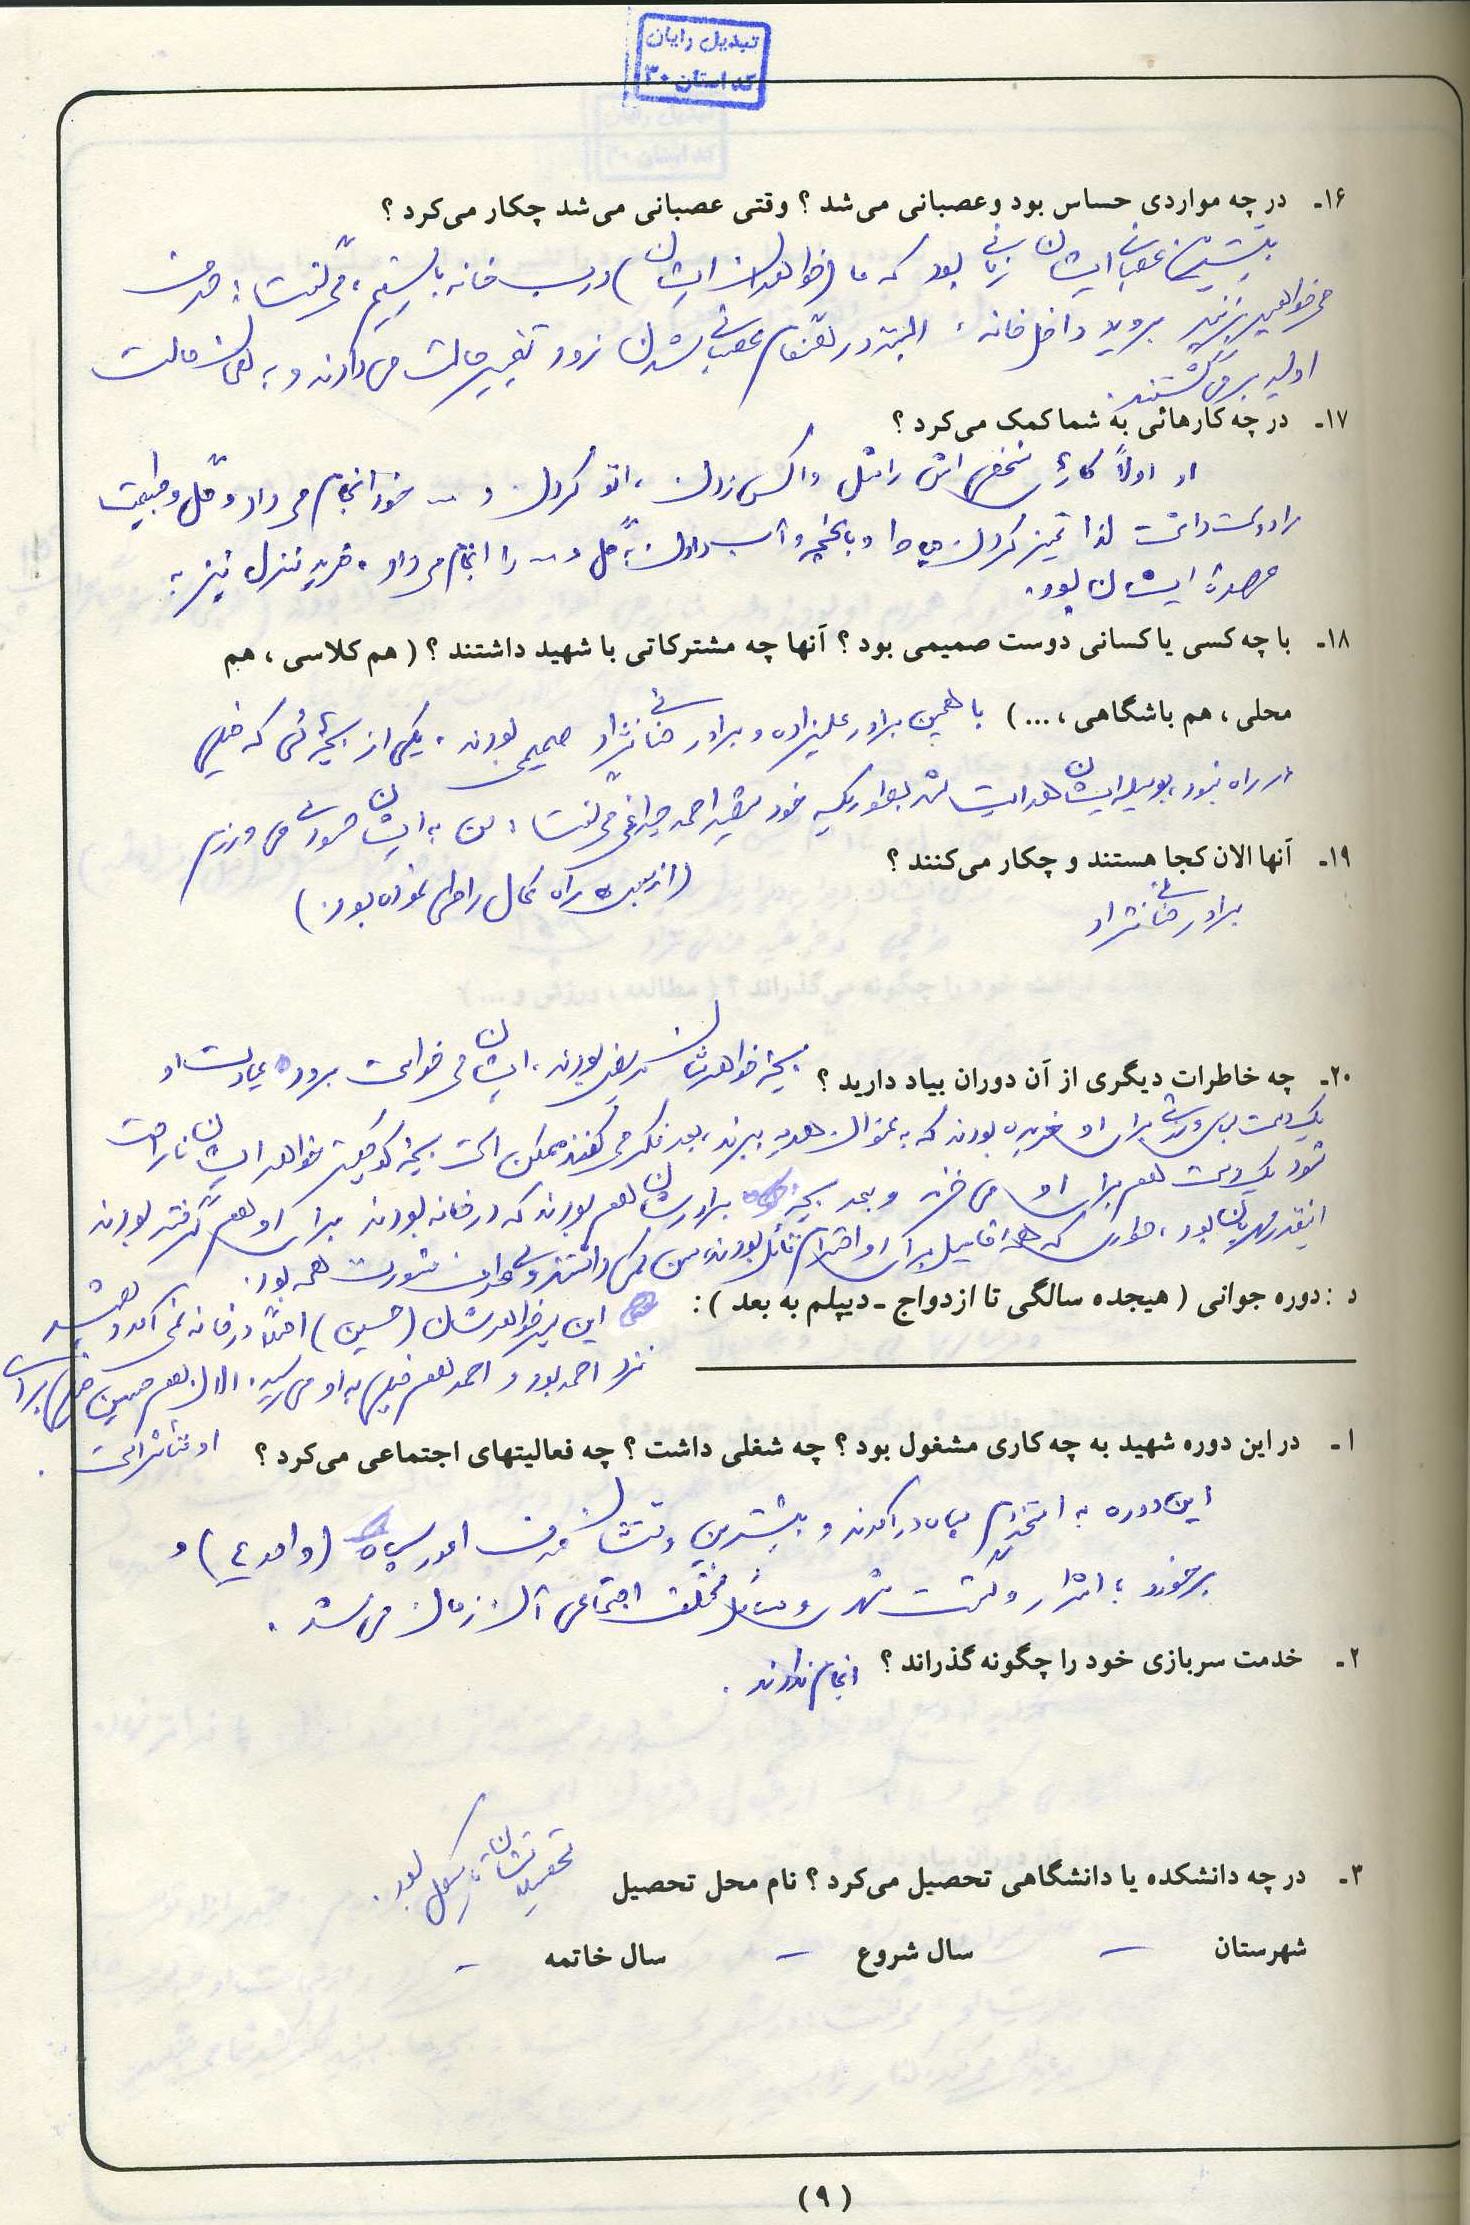 تبدیل رایان
کد استان ۳۰
۱۶- در چه مواردی حساس بود و عصبانی می‌شد ؟ وقتی عصبانی می‌شد چکار می‌کرد ؟
بیشترین عصبانی ایشان زمانی بود که ما (خواهران ایشان) درب خانه بایستیم ، می‌گفت : حرف
می‌خواهید بزنید بروید داخل خانه ، البته در هنگام عصبانی شدن زود تغییر حالت می‌دادند و به همان حالت
اولیه برمی‌گشتند .
۱۷- در چه کارهائی به شما کمک می‌کرد ؟
او اولاً کارهای شخصی‌اش را مثل واکس زدن ، اتو کردن و ... خود انجام می‌داد و گل و طبیعت
را دوست داشت لذا تمیز کردن حیاط و باغچه و آب دادن به گل و ... را انجام می‌داد . خرید منزل نیز به
عهدهٔ ایشان بود .
۱۸- با چه کسی یا کسانی دوست صمیمی بود ؟ آنها چه مشترکاتی با شهید داشتند ؟ ( هم کلاسی ، هم
محلی ، هم باشگاهی ، ... ) با همین برادر علیزاده و برادر صمیمی بودند . یکی از بچه‌هائی که خیلی
در راه نبود ، بوسیله ایشان هدایت شد بطوریکه خود شهید احمد چراغی می‌گفت : من به ایشان حسودی می‌ورزم
(از بس که راه کمال را طی نموده بود .)
۱۹- آنها الان کجا هستند و چکار می‌کنند ؟
برادر
۲۰- چه خاطرات دیگری از آن دوران بیاد دارید ؟ بچه خواهرشان مریض بودند ، ایشان می‌خواست برود عیادت او
یک دست لباس ورزشی برای او خریده بودند که به عنوان هدیه ببرند ، بعد فکر می‌کنند ممکن است بچه کوچکتر خواهر ایشان ناراحت
شود یک دست هم برای او می‌خرند و بعد بچه برادرشان هم بودند که در خانه بودند برای او هم گرفته بودند
اینقدر مهربان بود ، طوری که همه فامیل برای او احترام قائل بودند ، سن کمی داشتند ولی طرف مشورت همه بود .
د : دوره جوانی ( هیجده سالگی تا ازدواج - دیپلم به بعد ) : این پسر خواهرشان (حسین) اصلاً در خانه نمی‌آمد و همیشه
نزد احمد بود و احمد هم خیلی به او می‌رسید . الان هم حسین خیلی برای
او متأثر است .
۱- در این دوره شهید به چه کاری مشغول بود ؟ چه شغلی داشت ؟ چه فعالیتهای اجتماعی می‌کرد ؟
این دوره به استخدام سپاه درآمدند و بیشترین وقتشان صرف امور سپاه (واحد ع) و
برخورد با اشرار و گشت شهری و مسائل مختلف اجتماعی آن زمان می‌شد .
۲- خدمت سربازی خود را چگونه گذراند ؟ انجام ندادند .
۳- در چه دانشکده یا دانشگاهی تحصیل می‌کرد ؟ نام محل تحصیل تحصیلاتشان تا سیکل بود .
شهرستان - سال شروع - سال خاتمه -
(۹)